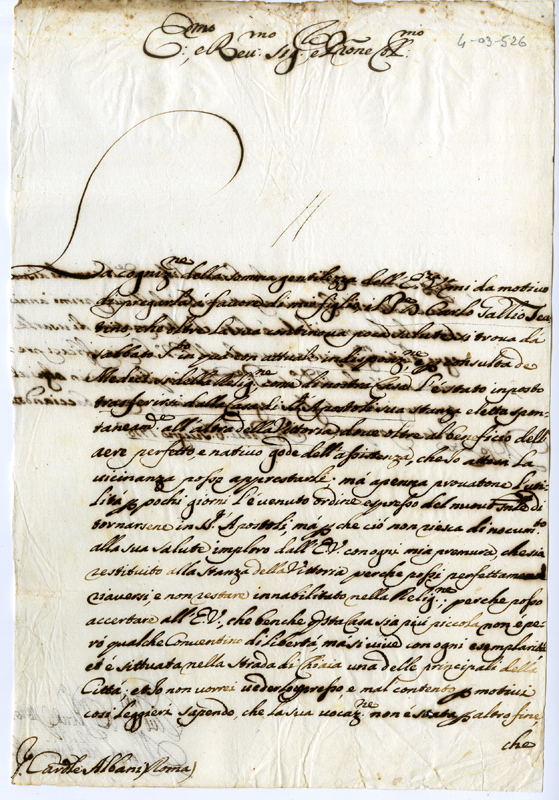 Em.mo e Rev.mo Sig.re e P.rone Col.mo
4-03-526
La cogniz.ne della somma gentilezza dell' E. V. mi da motivo
di pregarla a favore di mio figlio il P. D. Carlo Tea
tino, che oltre la sua continua poca salute si trova da
sabbato in qua con attuale indisposiz.ne, p consulta de
Medici si della Relig.ne come di nostra Casa l'è stato imposto
trasferirsi dalla casa di S.ti Apostoli sua stanza eletta spon
taneam.te all' altra della Vittoria dove oltre al beneficio dell'
aere perfetto e nativo gode dell' assistenza, che Io attesa La
vicinanza posso apprestarle; mà apenna provatone l'uti
lità p pochi giorni l'è venuto ordine espresso del nuovo di
tornarsene in SS. Apostoli, ma p che ciò non riesca di nocum.to
alla sua salute imploro dall' E. V. con ogni mia premura, che sia
restituito alla stanza della Vittoria perche possi perfettamente
riaversi, e non restare innabilitato nella Relig.ne; perche posso
accertare all' E. V., che benche q.sta Casa sia più piccola non è pe
rò qualche Conventino di libertà, ma si vive con ogni esemplarità
et è situata nella Strada di Chiaia una delle principali della
Città, et Io non vorrei vederlo oppresso, e mal contento p motivi
così leggieri sapendo, che la sua vocaz.ne non è stata p altro fine,
che
Card.le Albani (Roma)